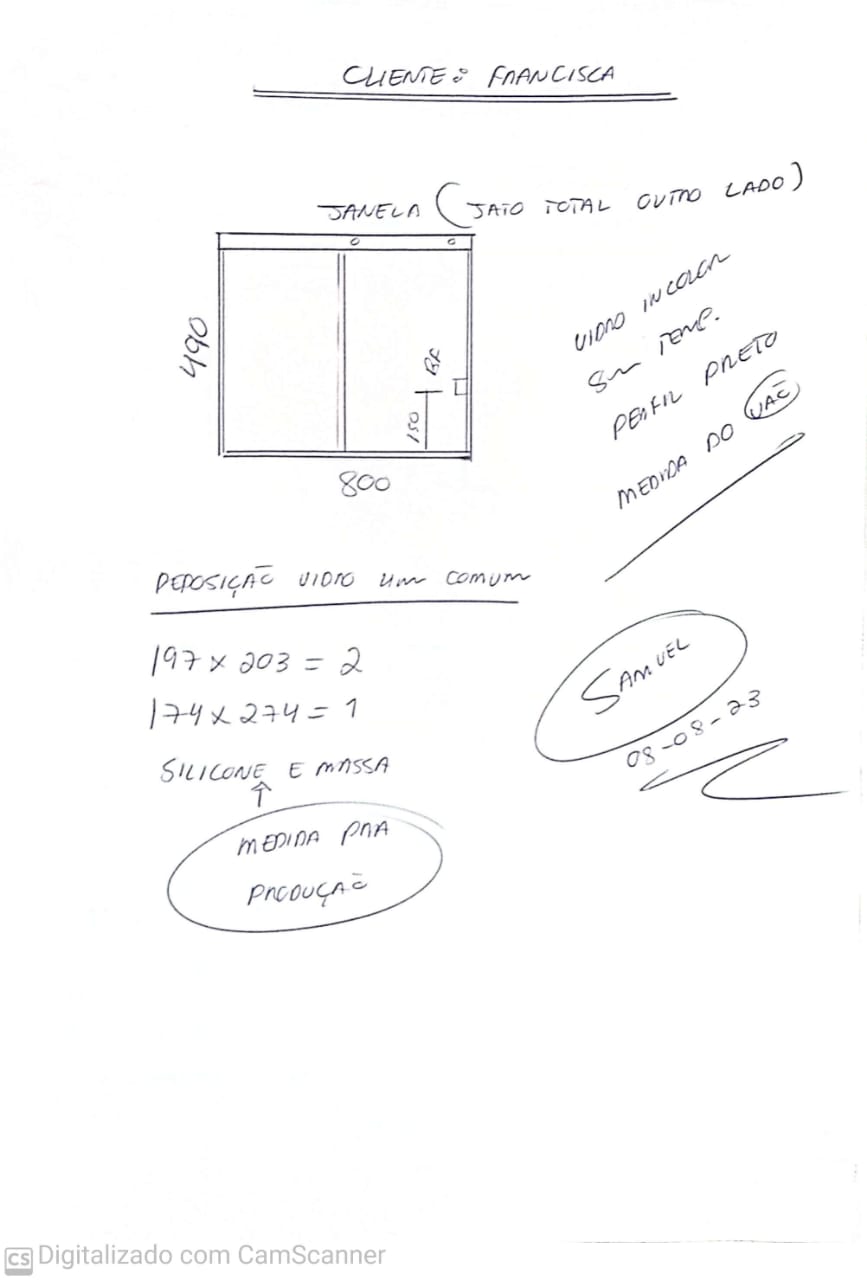 CLIENTE: FRANCISCA
JANELA (JATO TOTAL OUTRO LADO)
490
BF
150
800
VIDRO INCOLOR
8m TEMP.
PERFIL PRETO
MEDIDA DO VÃO
REPOSIÇÃO VIDRO 4mm COMUM
197 x 203 = 2
174 x 274 = 1
SILICONE E MASSA
MEDIDA PRA
PRODUÇÃO
SAMUEL
08-08-23
CS Digitalizado com CamScanner